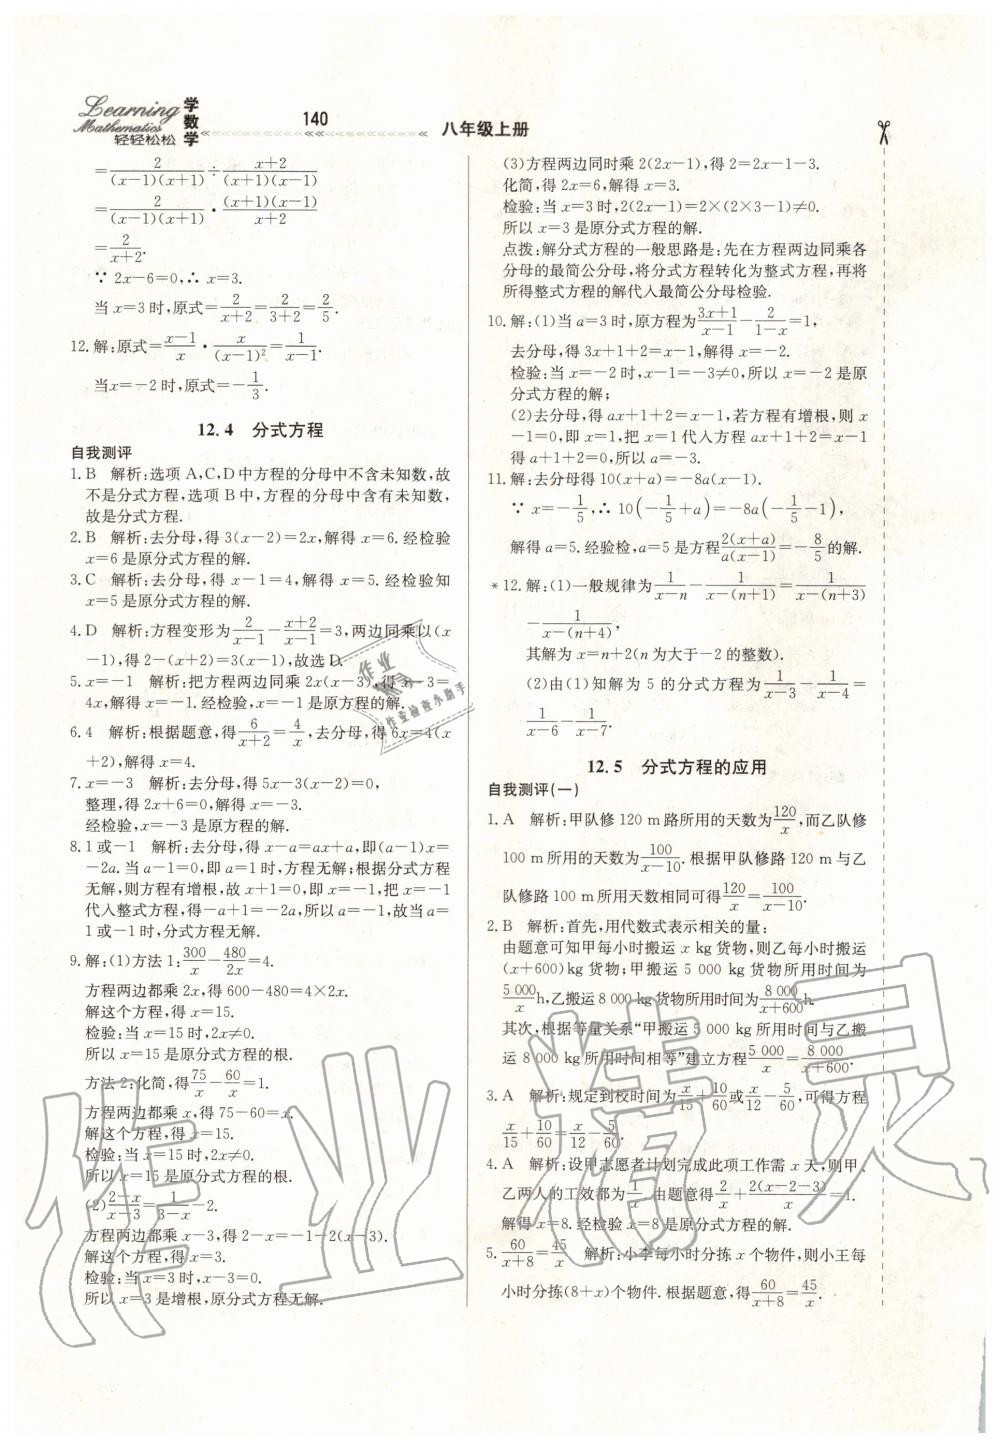 Learning
Mathematics
轻轻松松
学数学
140
八年级上册
=2/((x-1)(x+1))÷(x+2)/((x+1)(x-1))
=2/((x-1)(x+1))·((x+1)(x-1))/(x+2)
=2/(x+2).
∵ 2x-6=0,∴ x=3.
当 x=3 时,原式=2/(x+2)=2/(3+2)=2/5.
12.解:原式=(x-1)/x·x/(x-1)²=1/(x-1).
当x=-2 时,原式=-1/3.
12.4 分式方程
自我测评
1.B 解析:选项 A,C,D中方程的分母中不含未知数,故
不是分式方程,选项 B中,方程的分母中含有未知数,
故是分式方程.
2.B 解析:去分母,得 3(x-2)=2x,解得 x=6.经检验
x=6 是原分式方程的解.
3.C 解析:去分母,得 x-1=4,解得 x=5.经检验知
x=5 是原分式方程的解.
4.D 解析:方程变形为2/(x-1)-(x+2)/(x-1)=3,两边同乘以(x
-1),得 2-(x+2)=3(x-1),故选 D.
5.x=-1 解析:把方程两边同乘 2x(x-3),得 x-3=
4x,解得 x=-1.经检验,x=-1 是原方程的解.
6.4 解析:根据题意,得6/(x+2)=4/x,去分母,得 6x=4(x
+2),解得 x=4.
7.x=-3 解析:去分母,得 5x-3(x-2)=0,
整理,得 2x+6=0,解得 x=-3.
经检验,x=-3 是原方程的解.
8.1 或-1 解析:去分母,得 x-a=ax+a,即(a-1)x=
-2a.当 a-1=0,即 a=1 时,方程无解;根据分式方程
无解,则方程有增根,故 x+1=0,即 x=-1,把 x=-1
代入整式方程,得-a+1=-2a,所以 a=-1,故当 a=
1 或-1 时,分式方程无解.
9.解:(1)方法 1:300/x-480/2x=4.
方程两边都乘 2x,得 600-480=4×2x.
解这个方程,得 x=15.
检验:当 x=15 时,2x≠0.
所以 x=15 是原方程的根.
方法 2:化简,得75/x-60/x=1.
方程两边都乘 x,得 75-60=x.
解这个方程,得 x=15.
检验:当 x=15 时,x≠0.
所以 x=15 是原分式方程的根.
(2)(2-x)/(x-3)=1/(3-x)-2.
方程两边都乘 x-3,得 2-x=-1-2(x-3).
解这个方程,得 x=3.
检验:当 x=3 时,x-3=0.
所以 x=3 是增根,原分式方程无解.
(3)方程两边同时乘 2(2x-1),得 2=2x-1-3.
化简,得 2x=6,解得 x=3.
检验:当 x=3时,2(2x-1)=2×(2×3-1)≠0.
所以 x=3 是原分式方程的解.
点拨:解分式方程的一般思路是:先在方程两边同乘各
分母的最简公分母,将分式方程转化为整式方程,再将
所得整式方程的解代入最简公分母检验.
10.解:(1)当 a=3 时,原方程为(3x+1)/(x-1)-2/(1-x)=1,
去分母,得 3x+1+2=x-1,解得 x=-2.
检验:当 x=-2 时,x-1=-3≠0,所以 x=-2 是原
分式方程的解;
(2)去分母,得 ax+1+2=x-1,若方程有增根,则 x
-1=0,即 x=1,把 x=1 代入方程 ax+1+2=x-1
得 a+1+2=0,所以 a=-3.
11.解:去分母得 10(x+a)=-8a(x-1).
∵ x=-1/5,∴ 10(-1/5+a)=-8a(-1/5-1),
解得 a=5.经验检,a=5 是方程2(x+a)/a(x-1)=-8/5的解.
*12.解:(1)一般规律为1/(x-n)-1/(x-(n+1))=1/(x-(n+3))
-1/(x-(n+4)),
其解为 x=n+2(n 为大于-2 的整数).
(2)由(1)知解为 5 的分式方程为1/(x-3)-1/(x-4)=
1/(x-6)-1/(x-7).
12.5 分式方程的应用
自我测评(一)
1.A 解析:甲队修 120 m 路所用的天数为120/x,而乙队修
100 m 所用的天数为100/(x-10).根据甲队修路 120 m 与乙
队修路 100 m 所用天数相同可得120/x=100/(x-10).
2.B 解析:首先,用代数式表示相关的量:
由题意可知甲每小时搬运 x kg 货物,则乙每小时搬运
(x+600)kg 货物;甲搬运 5 000 kg 货物所用时间为
5 000/x h,乙搬运 8 000 kg货物所用时间为8 000/(x+600) h.
其次,根据等量关系“甲搬运 5 000 kg 所用时间与乙搬
运 8 000 kg 所用时间相等”建立方程5 000/x=8 000/(x+600).
3.A 解析:规定到校时间为x/15+10/60或x/12-5/60,可得方程
x/15+10/60=x/12-5/60.
4.A 解析:设甲志愿者计划完成此项工作需 x 天,则甲、
乙两人的工效都为1/x.由题意得2/x+2(x-2-3)/x=1.
解得 x=8.经检验 x=8 是原分式方程的解.
5.60/(x+8)=45/x 解析:小李每小时分拣 x 个物件,则小王每
小时分拣(8+x)个物件.根据题意,得60/(x+8)=45/x.
作业
作业检查小助手
作业精灵